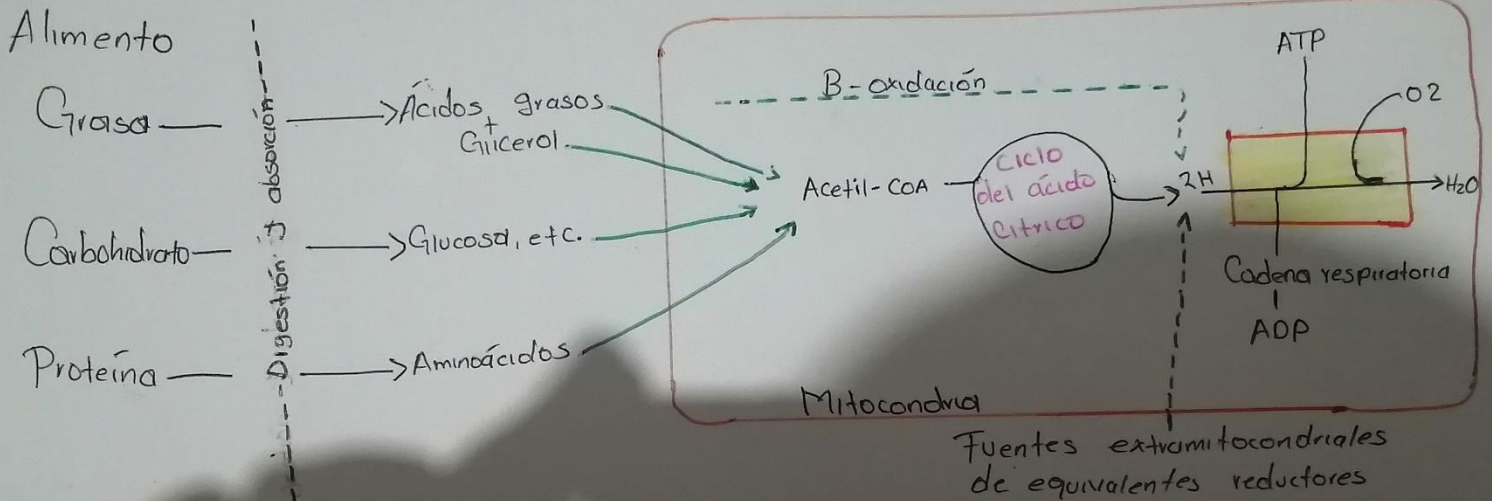 Alimento
Grasa
Carbohidrato
Proteína
Digestión y absorción
Ácidos grasos
+
Glicerol
Glucosa, etc.
Aminoácidos
B-oxidación
Acetil-COA
Ciclo
del ácido
Cítrico
2H
ATP
O2
H2O
Cadena respiratoria
ADP
Mitocondria
Fuentes extramitocondriales
de equivalentes reductores